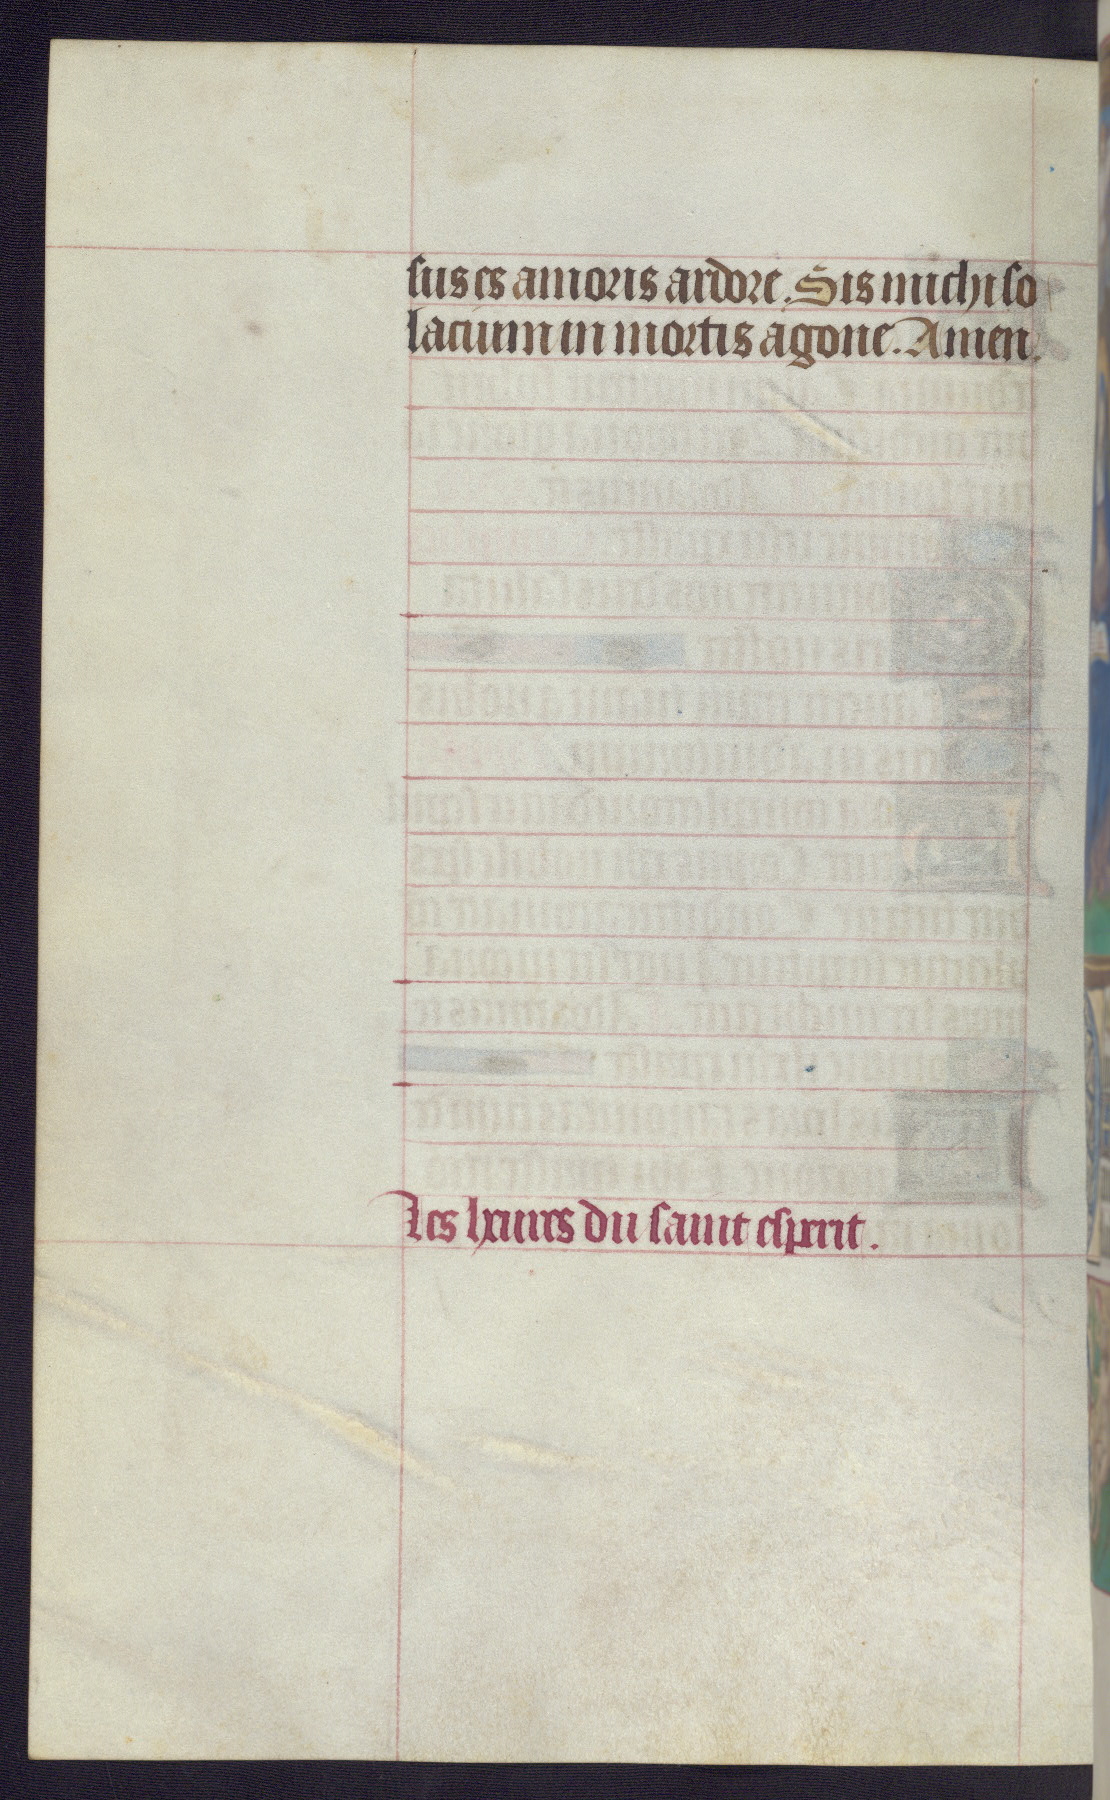 sus es amoris ardore. Sis michi so
lacium in mortis agone. Amen.
Les heures du saint esperit.